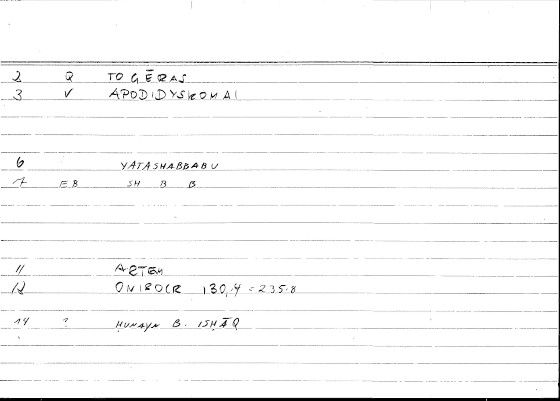 2 Q TO GĒRAS
3 V APODIDYSKOMAI
6 YATASHABBABU
7 EB SH B B
11 ARTEM
12 ONIROCR 130,4 = 235.8
14 ? ḤUNAYN B. ISḤĀQ